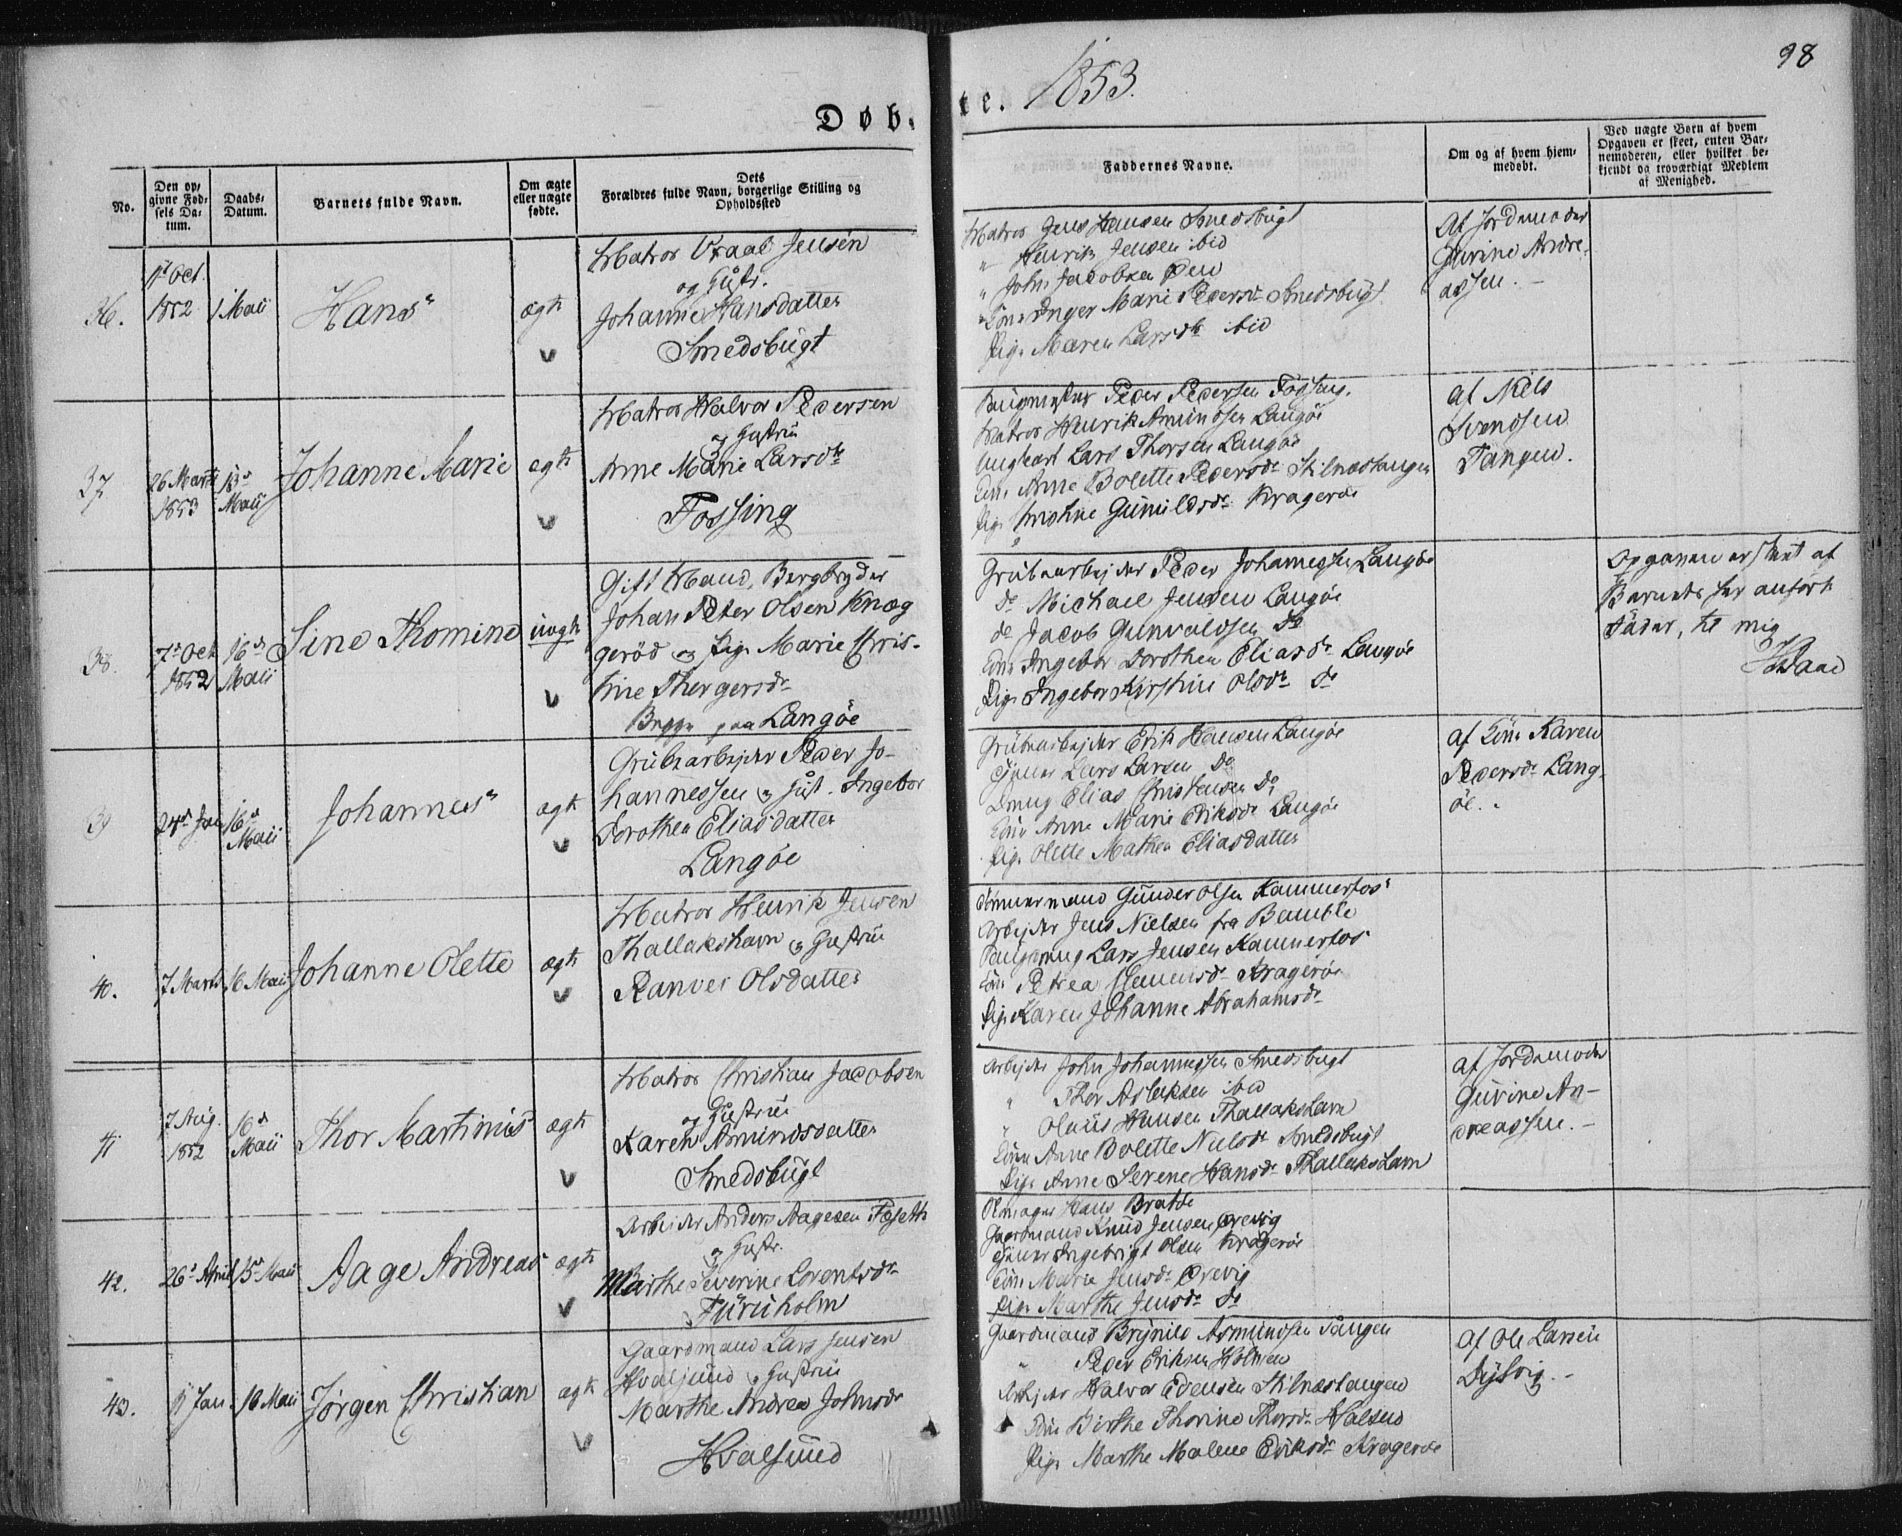 98
1853.
Døb-
te.
No.
Den opgivne Fødsels Datum.
Daabs-Datum.
Barnets fulde Navn.
Om ægte eller uægte fødte.
Dets Forældres fulde Navn, borgerlige Stilling og Opholdssted
Faddernes Navne.
Om og af hvem hjemmedøbt.
Ved uægte Børn af hvem Opgaven er skeet, enten Barnemoderen, eller hvilket bekjendt og troværdigt Medlem af Menighed.
36.
Oct. 1852
1 Maii
Hans
ægte
Matros Jensen
og Hustr.
Johanne Hansdatter
Smedsbugt
Matros Jens Hansen Smedsbugt
" Henrik Jensen ibid
" John Jacobsen Øen
Inger Marie Pedersdr Smedsbugt
Pige Maren Larsdtr ibid
Af Jordmoder
Gurine Andre-
assen. –
37
26 Marti 1853
15de Maii
Johanne Marie
ægte
Matros Halvor Pedersen
og Hustrue
Anne Marie Larsdtr
Fossing
Peder Pedersen Fossing.
Matros Henrik Amundsen Langøe
Ungkarl Lars Thorsen Langøe
Kone Anne Bolette Pedersdr Stilnestangen
Pige Kristine Gunildsdr Kragerøe
af Niels
Svendsen
Tangen.
38.
7de Oct 1852
16de Maii
Sine Thomine
uægte
Gift Mand, Bergbryder
Johan Peter Olsen Knæg
gerød og Pige Marie Chris-
tine Thergersdr
Begge paa Langøe
Grubearbejder Peder Johannessen Langøe
do Michael Jensen Langøe
do Jacob Gunvaldsen do
Kone Ingebor Dorothea Eliasdr Langøe
Pige Ingebor Kirstine Olsdr do
Opgaven er skeet af
Barnets her anførte
Fader, til mig
39
24de Jan
16de Maii
Johannes
ægte
Grubearbejder Peder Jo-
hannessen og Hust. Ingebor
Dorothea Eliasdatter
Langøe
Grubearbejder Erik Hansen Langøe
Lars Larsen do
Dreng Elias Christensen do
Kone Anne Marie Eriksdr Langøe
Pige Olette Mathea Eliasdatter
af Kone Karen
Pedersdr Lang-
øe. .
40.
7 Marti
16 Maii
Johanne Olette
ægte
Matros Henrik Jensen
Thallakshavn og Hustrue
Ranvei Olsdatter
Tømmermand Gunder Olsen Kammerfos
Arbejder Jens Nielsen fra Bamble
Lars Jensen Kammerfos
Kone Petrea Clemensdr Kragerøe
Pige Karen Johanne Abrahamsdr
41
7 Aug. 1852
16de Maii
Thor Martinius
ægte
Matros Christian Jacobsen
og Hustrue
Karen Amundsdatter
Smedsbugt
Arbejder John Johannessen Smedsbugt
" Thor Aslaksen ibid
" Olaus Hansen Thallakshavn
Kone Anne Bolette Nielsdr Smedsbugt
Pige Anne Serene Hansdr Thallakshavn
af Jordemoder
Gurine An-
dreassen. –
42.
26de April
15de Maii
Aage Andreas
ægte
Arbejder Anders Aagesen Foseth
og Hustr.
Marthe Severine Lorentsdr
Furuholm
Hans Bratte
Gaardmand Knud Jensen Ørevig
Ingebrigt Olsen Kragerøe
Kone Marie Jensdr Ørevig
Pige Marthe Jensdr do
43.
Jan
16 Maii
Jørgen Christian
ægte
Gaardmand Lars Jensen
Hvalsund og Hustrue
Marthe Andrea Johnsdr
Hvalsund
Gaardmand Brynild Asmundsen Tangen
" Peder Eriksen Holmen
Arbejder Halvor Edensen Stilnestangen
Kone Birthe Thorine Thorsdr Halsen
Pige Marthe Malene Eriksdr Kragerøe
Af Ole Larsen
Dytvig. –